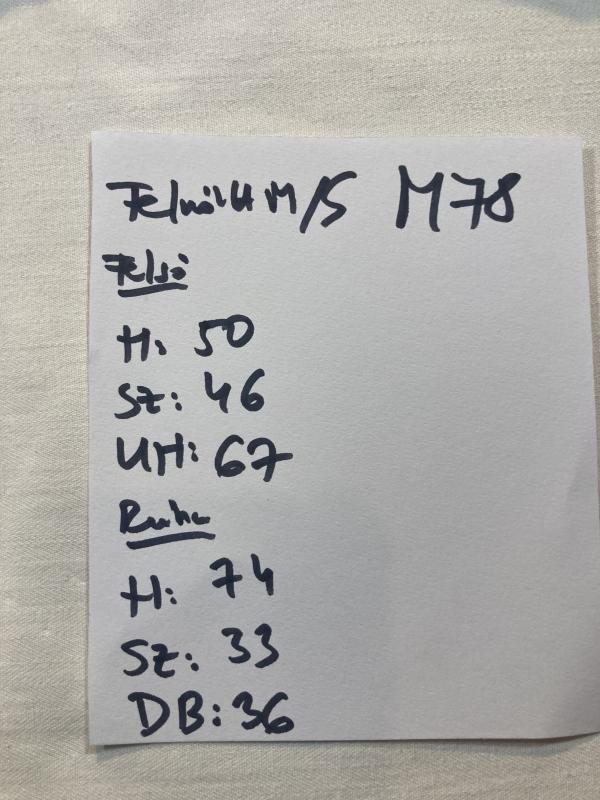 Felnőtt M/S M78
Felső
H: 50
SZ: 46
UH: 67
Ruha
H: 74
SZ: 33
DB: 36